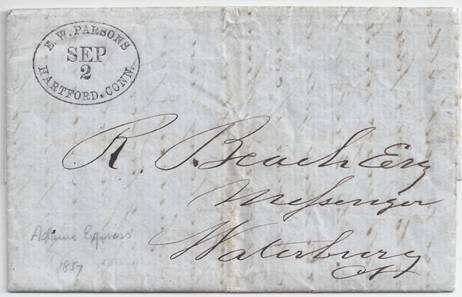 E. W. PARSONS
SEP
2
HARTFORD. CONN.
R. Beach Esq
Messenger
Waterbury
Ct
Adams Express
1857